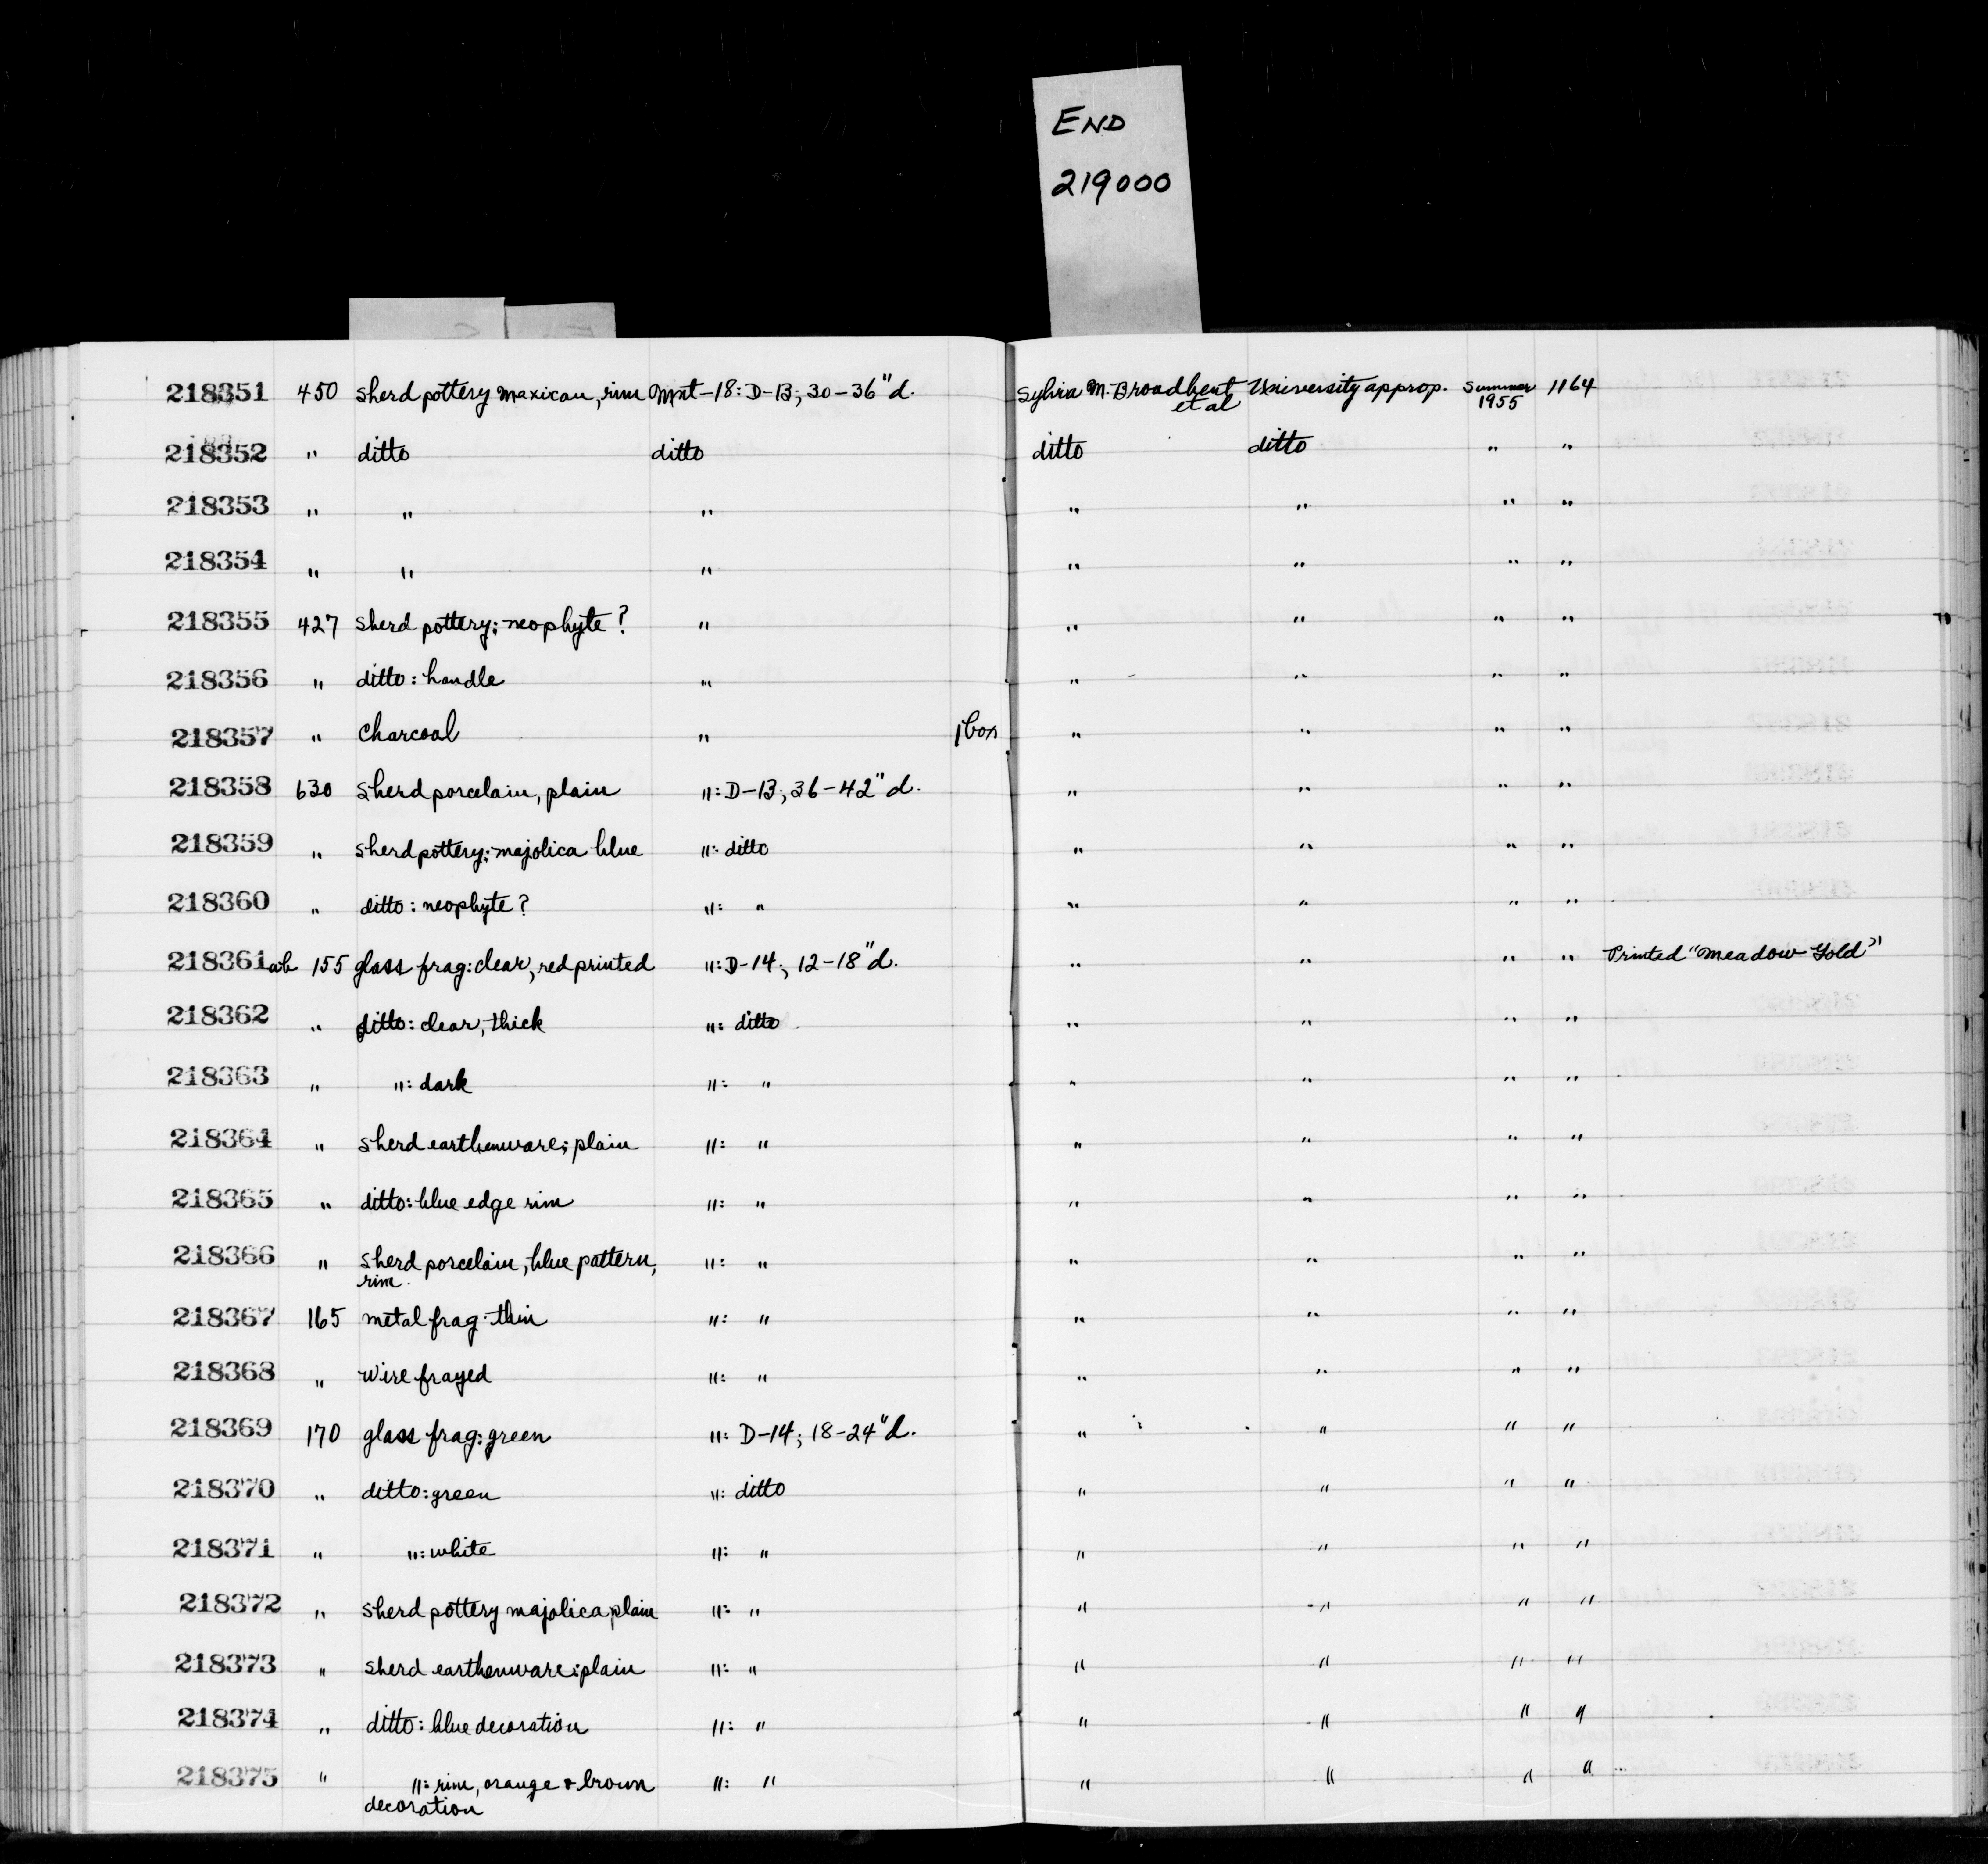 END
219000
218351 450 sherd pottery Mexican, rim Mnt-18: D-13; 30-36"d. Sylvia M. Broadbent University approp. Summer 1164
et al 1955
218352 " ditto ditto ditto ditto " "
218353 " " " " " " "
218354 " " " " " " "
218355 427 sherd pottery; neophyte? " " " " "
218356 " ditto: handle " " " " "
218357 " Charcoal " 1 box " " " "
218358 630 sherd porcelain, plain ": D-13; 36-42"d. " " " "
218359 " sherd pottery; majolica blue ": ditto " " " "
218360 " ditto: neophyte? ": " " " " "
218361ab 155 glass frag: clear, red printed ": D-14; 12-18"d. " " " " Printed "Meadow Gold"
218362 " ditto: clear, thick ": ditto " " " "
218363 " ": dark ": " " " " "
218364 " sherd earthenware; plain ": " " " " "
218365 " ditto: blue edge rim ": " " " " "
218366 " sherd porcelain, blue pattern, ": " " " " "
rim.
218367 165 metal frag. thin ": " " " " "
218368 " wire frayed ": " " " " "
218369 170 glass frag: green ": D-14; 18-24"d. " " " "
218370 " ditto: green ": ditto " " " "
218371 " ": white ": " " " " "
218372 " sherd pottery majolica, plain ": " " " " "
218373 " sherd earthenware: plain ": " " " " "
218374 " ditto: blue decoration ": " " " " "
218375 " ": rim, orange & brown ": " " " " "
decoration